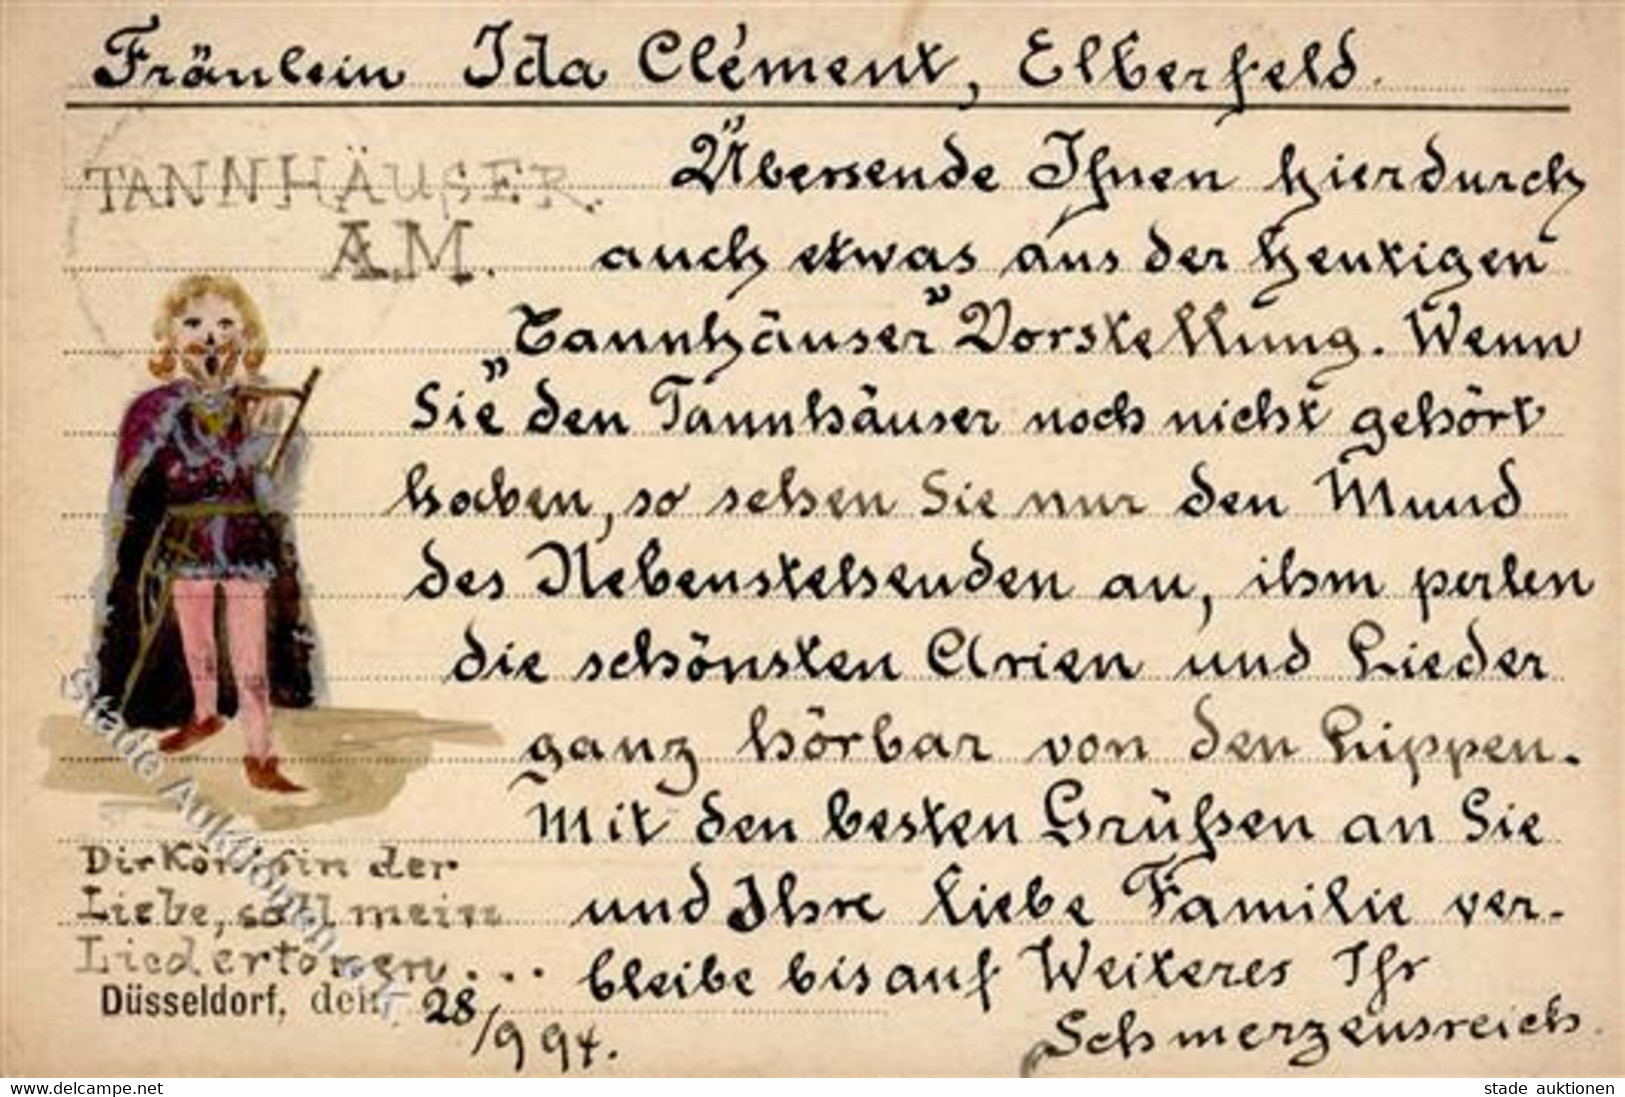 Fräulein Ida Clément, Elberfeld.
TANNHÄUSER.
A.M.
Übersende Ihnen hierdurch
auch etwas aus der heutigen
"Tannhäuser" Vorstellung. Wenn
Sie den Tannhäuser noch nicht gehört
haben, so sehen Sie nur den Mund
des Nebenstehenden an, ihm perlen
die schönsten Arien und Lieder
ganz hörbar von den Lippen.
Mit den besten Grüßen an Sie
und Ihre liebe Familie ver-
bleibe bis auf Weiteres Ihr
Schmerzensreich.
Dir Königin der
Liebe, soll mein
Lied ertönen...
Düsseldorf, den 28/9 94.
Stade Auktionen
www.delcampe.net
stade auktionen